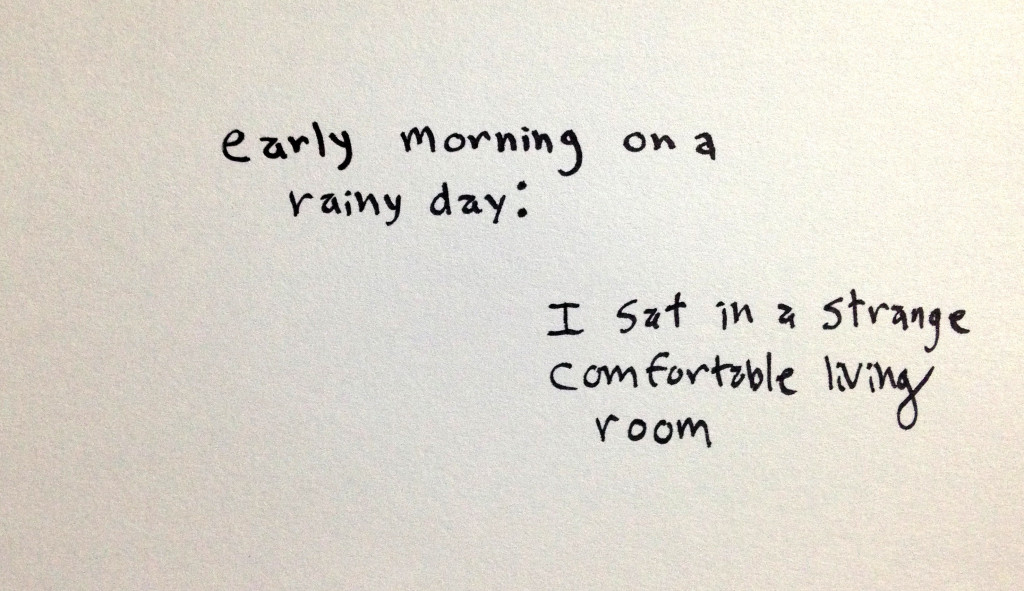 early morning on a
rainy day:
I sat in a strange
comfortable living
room